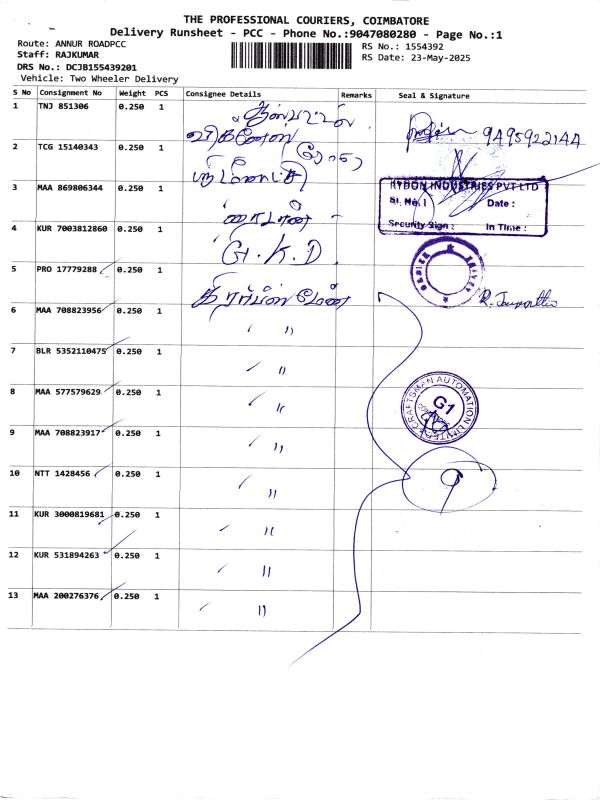 THE PROFESSIONAL COURIERS, COIMBATORE
Delivery Runsheet - PCC - Phone No.:9047080280 - Page No.:1
Route: ANNUR ROADPCC
Staff: RAJKUMAR
DRS No.: DCJB155439201
Vehicle: Two Wheeler Delivery
RS No.: 1554392
RS Date: 23-May-2025
S No Consignment No Weight PCS Consignee Details Remarks Seal & Signature
1 TNJ 851306 0.250 1 9495922144
2 TCG 15140343 0.250 1
3 MAA 869806344 0.250 1
HYDON INDUSTRIES PVT LTD
Sl. No. 1 Date :
Security Sign : In Time :
4 KUR 7003812860 0.250 1 G.K.D
5 PRO 17779288 0.250 1
6 MAA 708823956 0.250 1 " 
7 BLR 5352110475 0.250 1 "
8 MAA 577579629 0.250 1 "
CRAFTSMAN AUTOMATION LIMITED
G1
9 MAA 708823917 0.250 1 "
10 NTT 1428456 0.250 1 " 9
11 KUR 3000819681 0.250 1 "
12 KUR 531894263 0.250 1 "
13 MAA 200276376 0.250 1 "